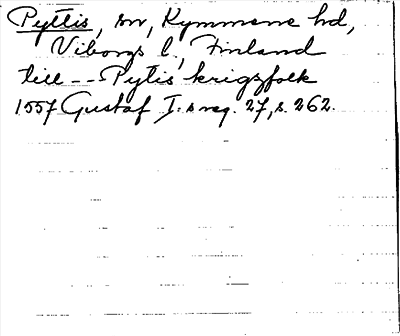 Pyttis, sn, Kymmene hd,
Viborgs l., Finland
till -- Pytis krigzfolk
1557 Gustaf I:s reg. 27, s. 262.